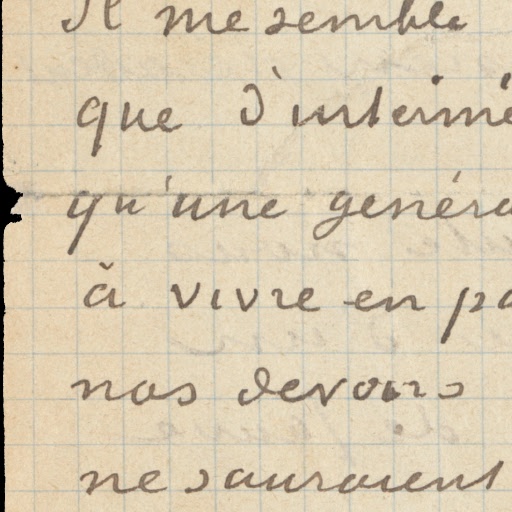 Il me semble
que d'intermé
qu'une généra
à vivre en pa
nos devoirs
ne sauraient